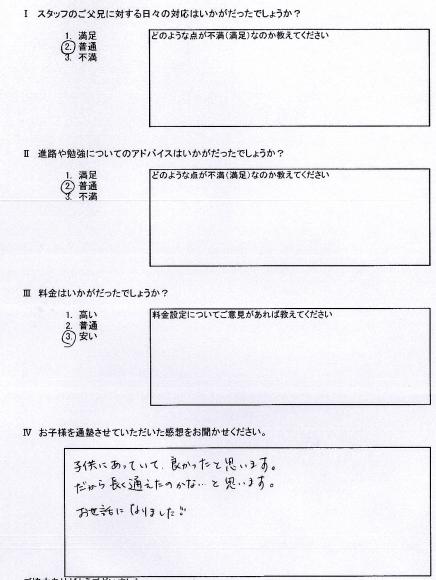 Ⅰ スタッフのご父兄に対する日々の対応はいかがだったでしょうか？
1. 満足
2. 普通
3. 不満
どのような点が不満(満足)なのか教えてください
Ⅱ 進路や勉強についてのアドバイスはいかがだったでしょうか？
1. 満足
2. 普通
3. 不満
どのような点が不満(満足)なのか教えてください
Ⅲ 料金はいかがだったでしょうか？
1. 高い
2. 普通
3. 安い
料金設定についてご意見があれば教えてください
Ⅳ お子様を通塾させていただいた感想をお聞かせください。
子供にあっていて、良かったと思います。
だから長く通えたのかな…と思います。
お世話になりました!!